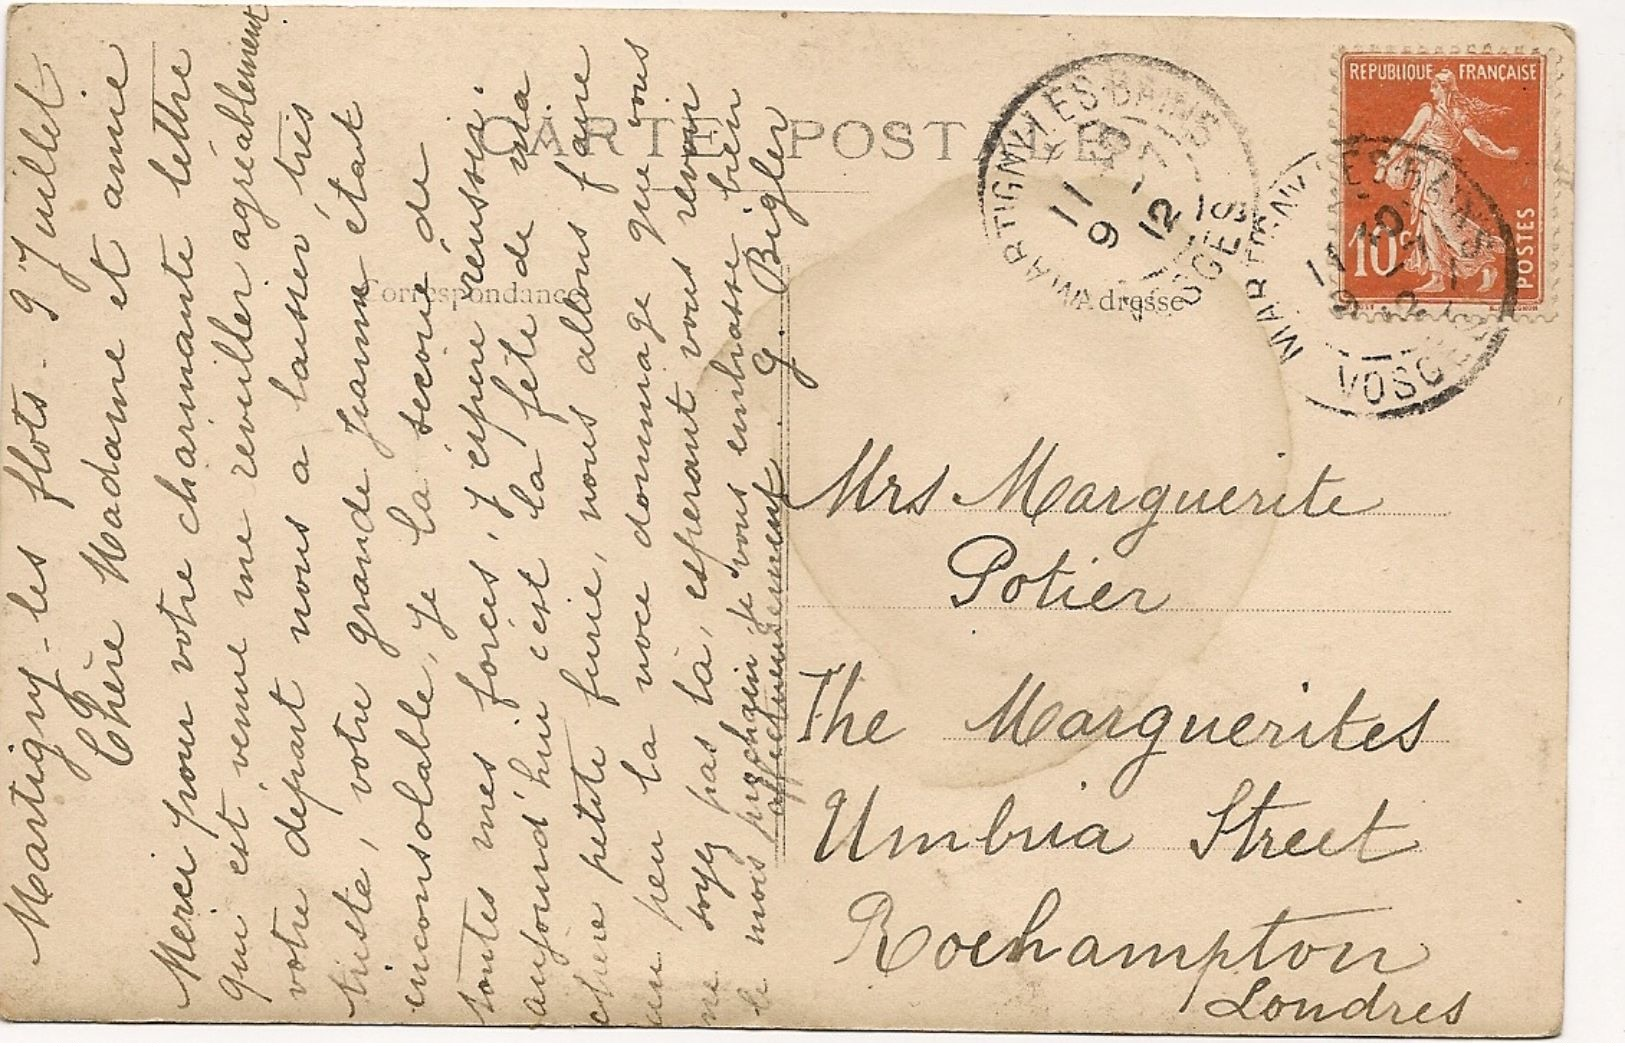 Martigny-les flots - 9 Juillet
Chère Madame et amie
Merci pour votre charmante lettre
qui est venue me reveiller agréablement
votre départ nous a laisser très
triste, votre grande Jeanne était
inconsolable, je la secoue de
toutes mes forces, j'espere réussir.
aujourd'hui c'est la fête de ma
chère petite furie, nous allons faire
un peu la noce dommage que vous
ne soyez pas là, esperant vous revoir
le mois prochain je vous embrasse bien
affectueusement. G. Bigler
CARTE POSTALE
Correspondance
Adresse
REPUBLIQUE FRANÇAISE
10c
POSTES
MARTIGNY-LES-BAINS
11
9-7
12
VOSGES
MARTIGNY-LES-BAINS
VOSGES
Mrs Marguerite
Potier
The Marguerites
Umbria Street
Roehampton
Londres